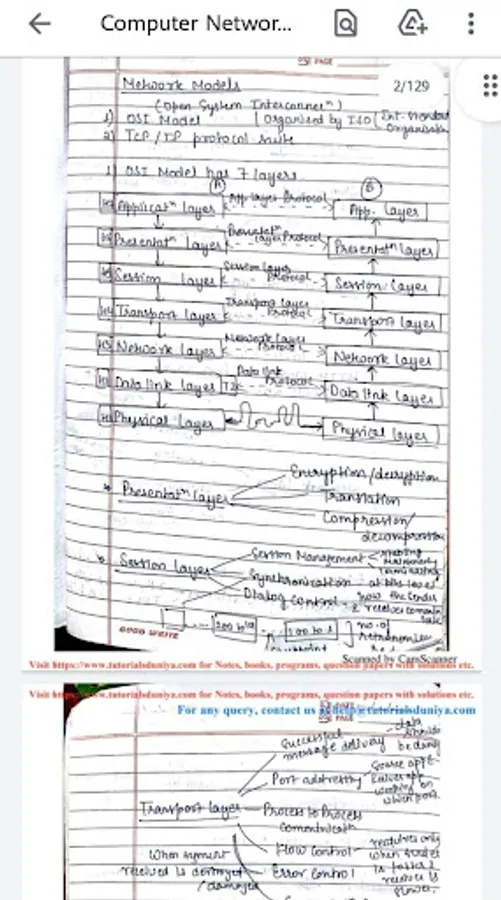 Computer Networ...
PAGE
2/129
Network Models
(Open System Interconnectn)
1) OSI Model (Organised by ISO (Int. Standard Organisatn
2) TCP/IP protocol suite
1) OSI Model has 7 layers
A B
Applicatn layer App layer Protocol App. Layer
Presentatn layer Presentatn Layer Protocol Presentatn layer
Session layer Session Layer Protocol Session Layer
Transport layer Transport Layer Protocol Transport layer
Network layer Network Layer Protocol Network layer
Data link layer Data link Protocol Data link layer
Physical layer Physical layer
Encryption/decryption
* Presentatn layer Translation
Compression/
decompression
* Session layer Session Management
Synchronization at bits level
Dialog control - how the sender
& receiver
200 to 100 to 1 no. of
GOOD WRITE
Scanned by CamScanner
Visit https://www.tutorialsduniya.com for Notes, books, programs, question papers with solutions etc.
Visit https://www.tutorialsduniya.com for Notes, books, programs, question papers with solutions etc.
For any query, contact us at help@tutorialsduniya.com
PAGE
Successful
message delivery data should be
Port addressing
working on which port
Transport layer Process to Process
Flow Control requires only
when sender
is faster &
receiver is
slower.
When segment
received is destroyed
/damaged Error Control